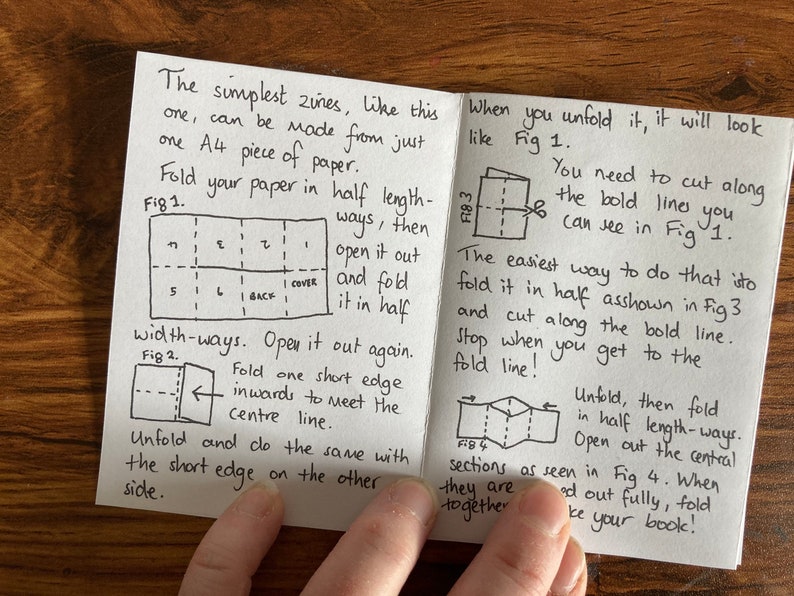 The simplest zines, like this
one, can be made from just
one A4 piece of paper.
Fold your paper in half length-
ways, then
open it out
and fold
it in half
Fig 1.
4 3 2 1
5 6 BACK COVER
width-ways. Open it out again.
Fig 2.
Fold one short edge
inwards to meet the
centre line.
Unfold and do the same with
the short edge on the other
side.
When you unfold it, it will look
like Fig 1.
Fig 3
You need to cut along
the bold lines you
can see in Fig 1.
The easiest way to do that isto
fold it in half asshown in Fig 3
and cut along the bold line.
Stop when you get to the
fold line!
Fig 4
Unfold, then fold
in half length-ways.
Open out the central
sections as seen in Fig 4. When
they are out fully, fold
together your book!